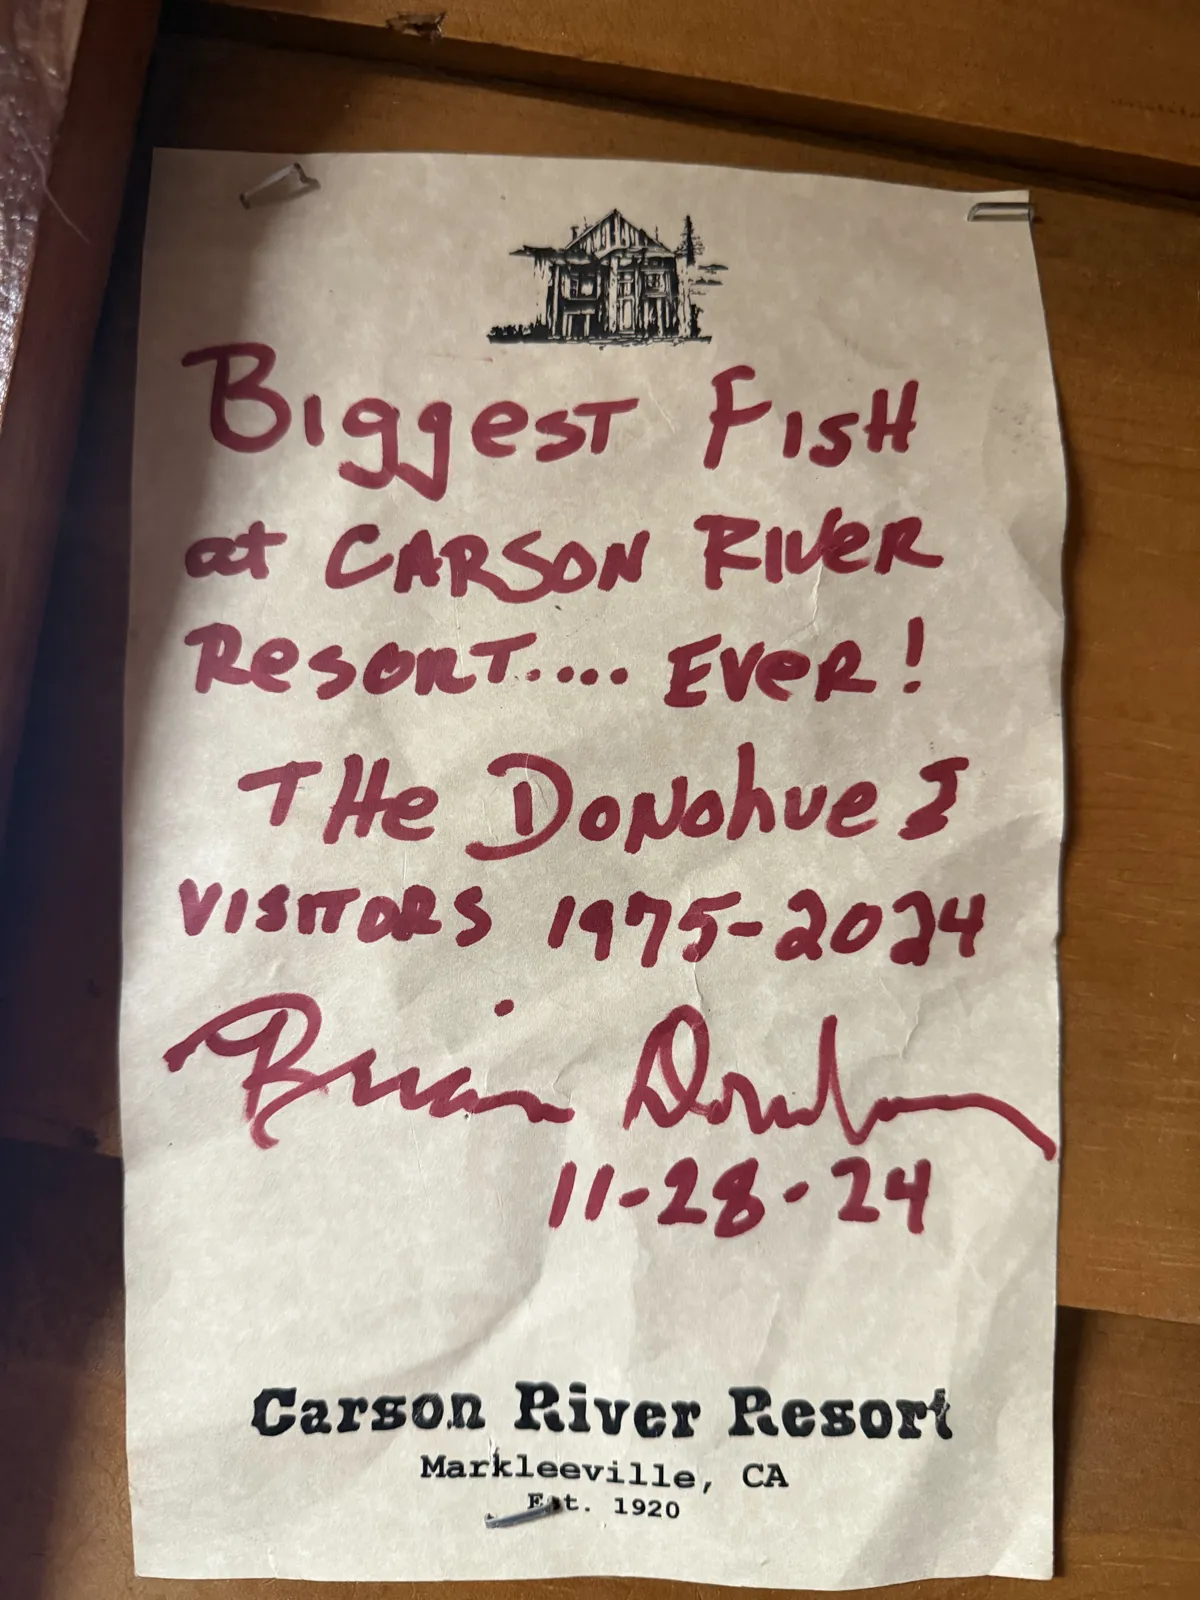 Biggest Fish
at CARSON RIVER
Resort.... Ever!
THe DoNoHue I
VISITORS 1975-2024
Brian Donohue
11-28-24
Carson River Resort
Markleeville, CA
Est. 1920